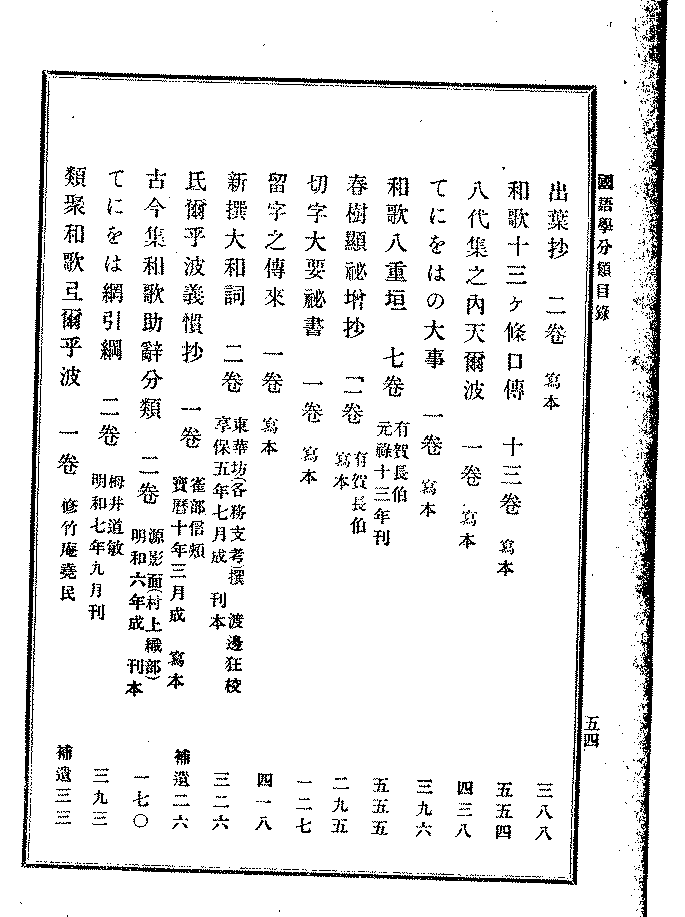 國語學分類目錄
五四
出葉抄 二卷 寫本 三八八
和歌十三ヶ條口傳 十三卷 寫本 五五四
八代集之內天爾波 一卷 寫本 四三八
てにをはの大事 一卷 寫本 三九六
和歌八重垣 七卷 有賀長伯 元祿十三年刊 五五五
春樹顯祕增抄 二卷 有賀長伯 寫本 二九五
切字大要祕書 一卷 寫本 一二七
留字之傳來 一卷 寫本 四一八
新撰大和詞 二卷 東華坊(各務支考)撰 渡邊狂校 享保五年七月成 刊本 三二六
氐爾乎波義慣抄 一卷 雀部信頰 寶曆十年三月成 寫本 補遺二六
古今集和歌助辭分類 二卷 源影面(村上織部) 明和六年成 刊本 一七〇
てにをは網引綱 二卷 栂井道敏 明和七年九月刊 三九三
類聚和歌弖爾乎波 一卷 修竹庵堯民 補遺三三